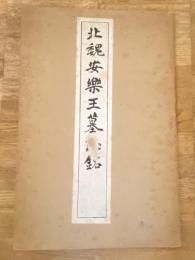 北魏安樂王墓